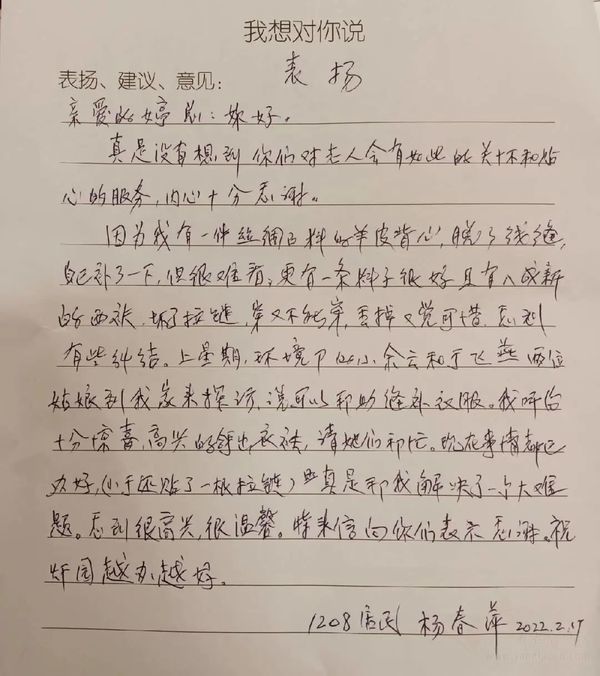 我想对你说
表扬、建议、意见：表扬
亲爱的婷：您好。
真是没有想到你们对老人会有如此的关怀和贴
心的服务，内心十分感谢。
因为我有一件丝绸面料的羊皮背心，脱了线缝，
自己补了一下，但很难看；更有一条料子很好且有八成新
的西裤，坏了拉链，穿又不能穿，丢掉又觉可惜，感到
有些纠结。上星期，环境部的小余云和于飞燕两位
姑娘到我家来探访，说可以帮助缝补衣服。我听后
十分惊喜，高兴的拿出衣裤，请她们帮忙。现在事情都已
办好，（小于还贴了一根拉链）真是帮我解决了一个大难
题。感到很高兴，很温馨。特来信向你们表示感谢。祝
园越办越好。
1208居民 杨春萍 2022.2.17